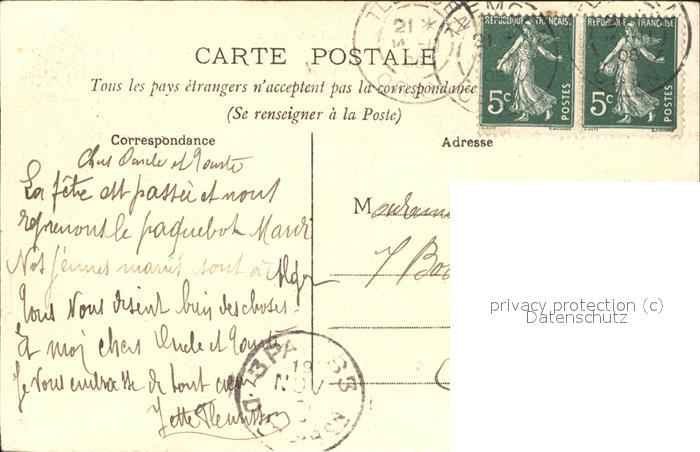 CARTE POSTALE
Tous les pays étrangers n'acceptent pas la correspondance
(Se renseigner à la Poste)
RÉPUBLIQUE FRANÇAISE
5c POSTES
RÉPUBLIQUE FRANÇAISE
5c POSTES
Correspondance
Adresse
Chers Oncle et Tante
La fête est passée et nous
reprenons le paquebot Mardi
Nos jeunes mariés sont à Alger
Tous Vous disent bien des choses
Et moi chers Oncle et Tante
Je Vous embrasse de tout cœur
M
privacy protection (c)
Datenschutz